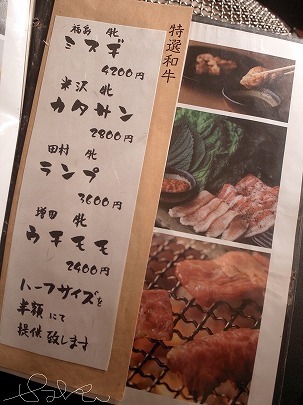 特選和牛
福島 牝
ミスギ
4200円
米沢 牝
カタサン
2800円
田村 牝
ランプ
3600円
増田 牝
ウチモモ
2400円
ハーフサイズを
半額にて
提供致します